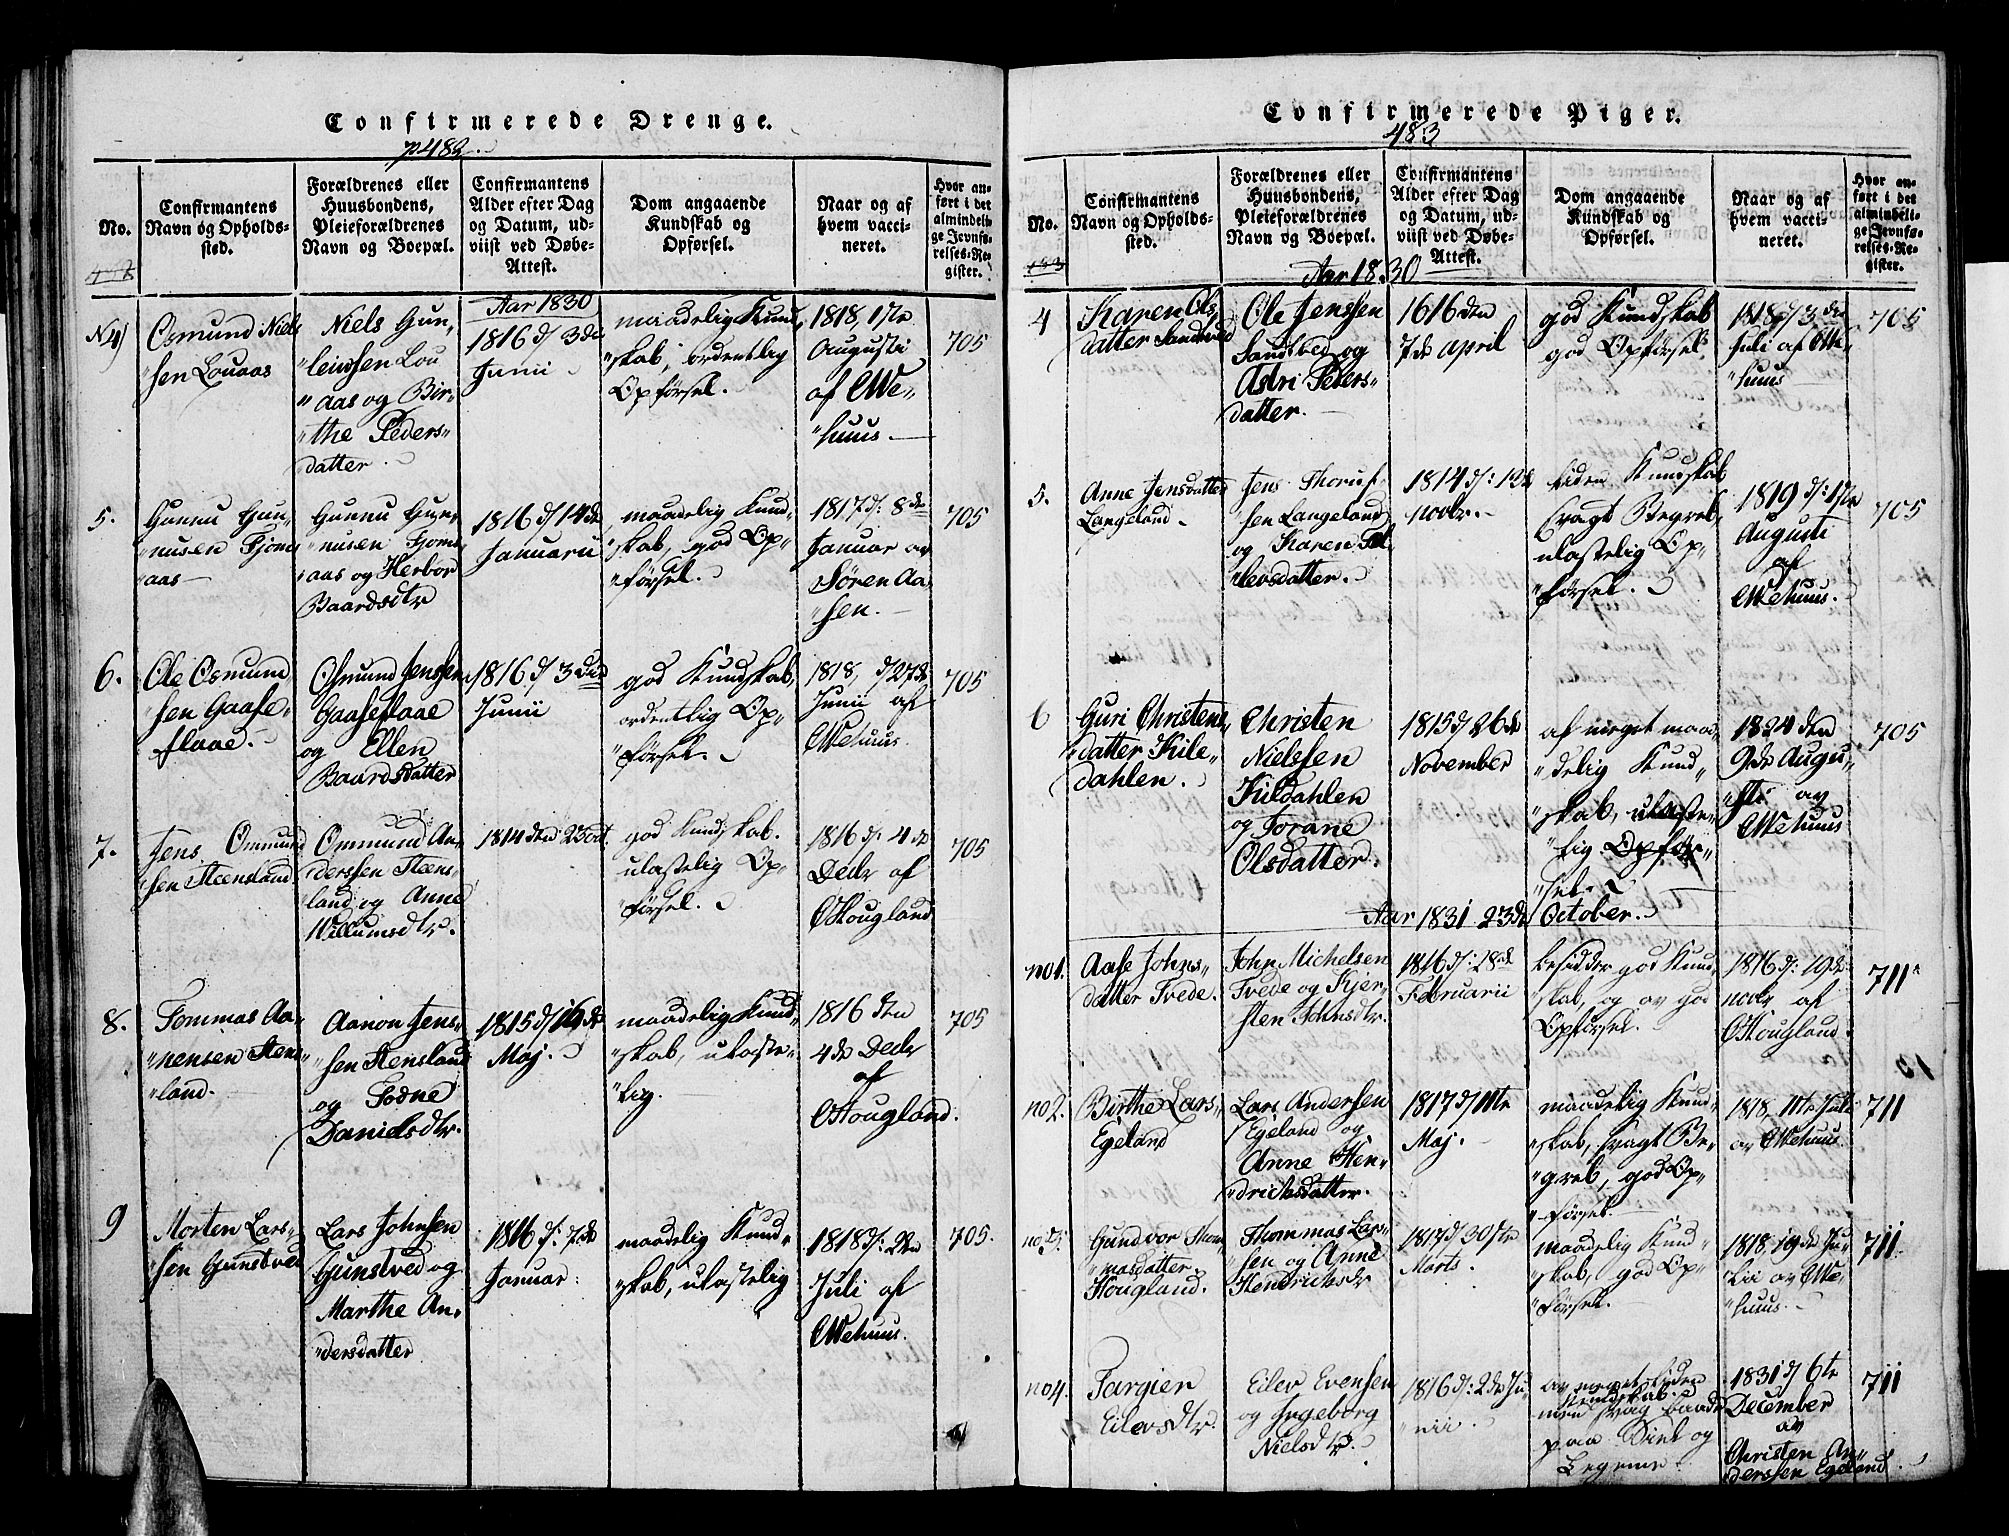 Confirmerede Drenge.
p 482.
No.
Confirmantens
Navn og Opholds-
sted.
Forældrenes eller
Huusbondens,
Pleieforældrenes
Navn og Boepæl.
Confirmantens
Alder efter Dag
og Datum, ud-
viist ved Døbe-
Attest.
Dom angaaende
Kundskab og
Opførsel.
Naar og af
hvem vacci-
neret.
Hvor an-
ført i det
almindeli-
ge Jevnfø-
relses-Re-
gister.
Aar 1830
N 4)
Osmund Niels
"sen Louaas
Niels Gun-
leivsen Lou
"aas og Bir-
"the Peders-
datter.
1816 d/ 3de
Junii
maadelig Kund
skab, ordentlig
Opførsel.
1818, 1ste
Augusti
af CWe-
"huus.
705
5.
Gunnu Gun-
"nusen Fjom
"aas
Gunnu Gun-
"nusen Fjom
"aas og Herbor
Baardsdtr
1816 d/ 14de
Januarii
maadelig Kund-
"skab, god Op-
"førsel.
1817 d: 8de
Januar av
Søren Aa-
"sen.
705
6.
Ole Osmund
"sen Gaase-
flaae.
Osmund Jenssen
Gaaseflaae
og Ellen
Baardsdatter
1816 d/ 3die
Junii
god Kundskab,
ordentlig Op-
"førsel.
1818, d/ 27de
Junii af
CWehuus.
705
7.
Jens Ommund
"sen Steensland
Ommund An-
derssen Steens-
land og Anne
Willumsdtr.
1814 den 23 oct.
god Kundskab.
ulastelig Op-
"førsel.
1816 d: 4de
Decbr af
OHougland
705
8.
Tommas Aa-
"nensen Stens-
"land.
Aanon Jens-
"sen Stensland
og Todne
Danielsdtr.
1815 d/ 16de
Maj.
maadelig Kund-
"skab, ulaste-
"lig.
1816 den
4de Decbr
af
OHougland.
705
9
Morten Lars-
"sen Gunstved
Lars Johnsen
Gunstved og
Marthe An-
"dersdatter
1816 d: 7de
Januar:
maadelig Kund-
"skab, ulastelig
1818 d: 2den
Juli af
CWehuus.
705.
Confirmerede Piger.
483
No.
Confirmantens
Navn og Opholds-
sted.
Forældrenes eller
Huusbondens,
Pleieforældrenes
Navn og Boepæl.
Confirmantens
Alder efter Dag
og Datum, ud-
viist ved Døbe-
Attest.
Dom angaaende
Kundskab og
Opførsel.
Naar og af
hvem vacci-
neret.
Hvor an-
ført i det
almindeli-
ge Jevnfø-
relses-Re-
gister.
Aar 1830
4
Karen Ols
datter Sandved
Ole Jenssen
Sandved og
Astri Peters-
datter.
1616 den
7de April
god Kundskab
god Opførsel.
1818 d/ 3die
Juli af CWe-
"huus
705
5.
Anne Jensdatter
Langeland.
Jens
"sen Langeland
og Karen
"levsdatter.
1814 d: 12te
novbr.
liden Kundskab
svagt Begreb,
ulastelig Op-
"førsel.
1819 d: 1ste
Augusti
af
CWehuus.
705
6
Guri Christens-
"datter Kile-
dahlen.
Christen
Nielssen
Kildahlen
og Jorane
Olsdatter.
1815 d/ 26de
November
af meget maa-
"delig Kund-
"skab, ulaste-
"lig Opfør-
"sel.
1824 den
9de Augu-
"sti av
CWehuus
705
Aar 1831 23de October.
no 1.
Aase Johns-
datter Trede.
John Michelsen
Trede og Kjer-
"sten Johnsdtr.
1816 d: 28de
Februarii
besidder god Kund-
"skab, og av god
Opførsel.
1816 d: 19de
novbr af
OHougland.
711
no 2.
Birthe Lars-
Egeland
Lars Andersen
Egeland og
Anne Hen-
"drichsdatter.
1817 d/ 11te
Maj.
maadelig Kund-
"skab, svagt Be-
"greb, god Op-
"førsel.
1818, 11te Juli
av CWehuus
711
no 3.
Gundvor Thom-
"masdatter
Hougland.
Thommas Lars-
"sen og Anne
Hendrichsdtr
1817 d/ 30te
Marts.
maadelig Kund-
"skab, god Op-
"førsel.
1818, 19de Ju-
"lii av CWe-
"huus.
711
no 4.
Targier
Eilevsdtr.
Eilev Evensen
og Ingeborg
Nielsdtr.
1816 d: 2de Ju-
"nii.
av meget liden
Kundskab.
men svag baade
paa Siel og
Legeme.
1831 d/ 6te
December
av
Christen An-
"derssen Egeland.
711